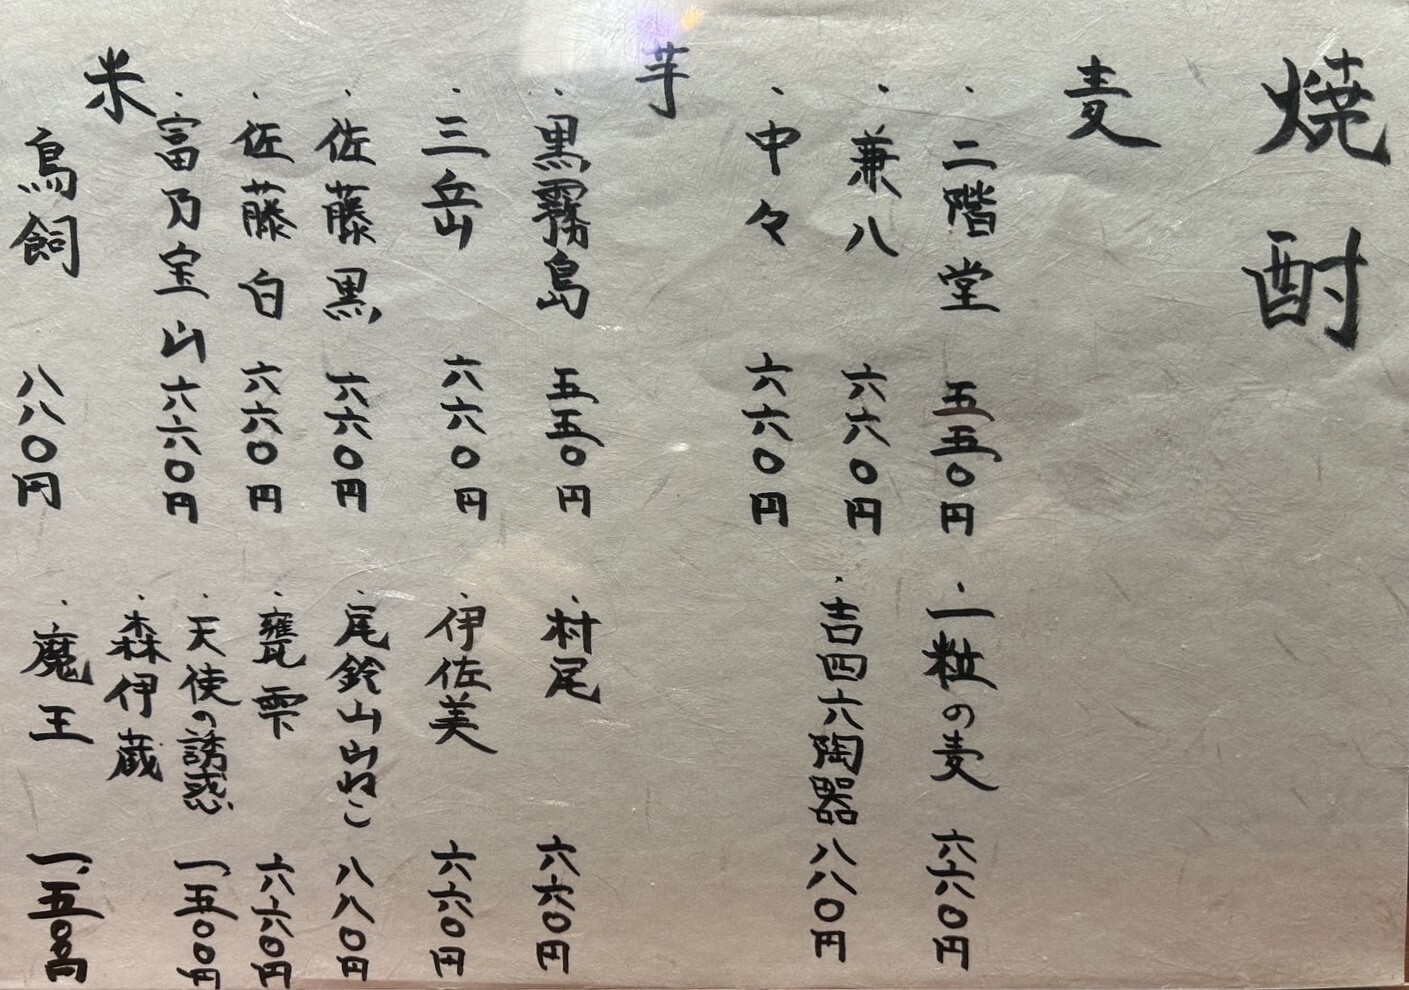 焼酎
麦
・二階堂 五五〇円
・兼八 六六〇円
・中々 六六〇円
・一粒の麦 六六〇円
・吉四六陶器 八八〇円
芋
・黒霧島 五五〇円
・三岳 六六〇円
・佐藤黒 六六〇円
・佐藤白 六六〇円
・富乃宝山 六六〇円
・村尾 六六〇円
・伊佐美 六六〇円
・尾鈴山山ねこ 八八〇円
・甕雫 六六〇円
・天使の誘惑 一、五〇〇円
・森伊蔵
・魔王 一、五〇〇円
米
鳥飼 八八〇円